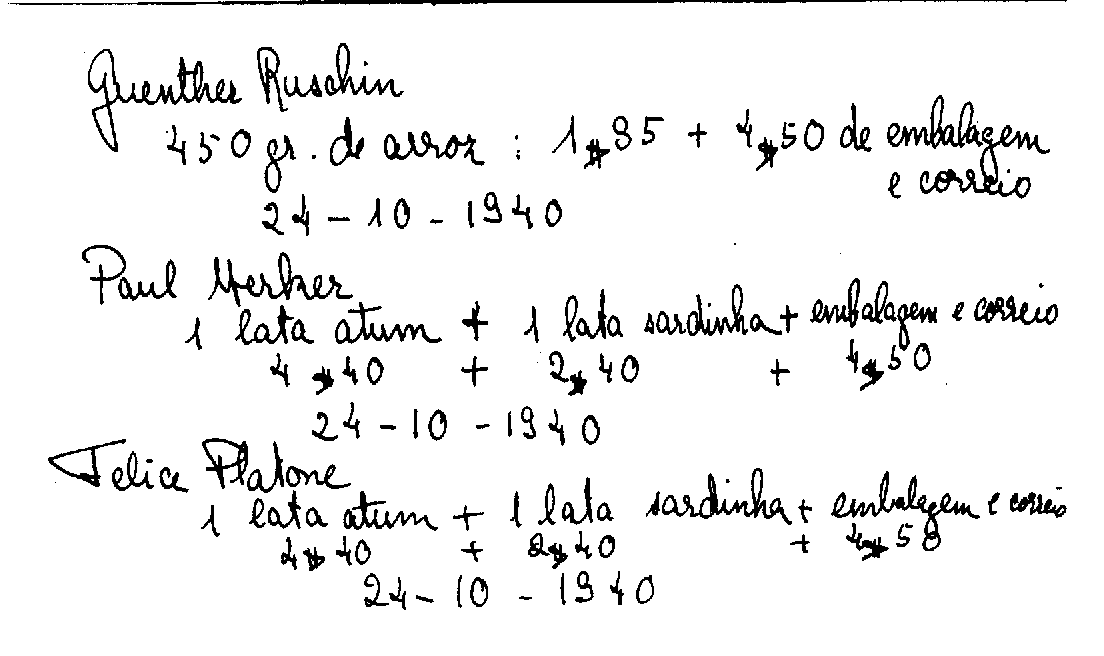 Guenther Ruschin
450 gr. de arroz : 1$85 + 4$50 de embalagem
e correio
24 - 10 - 1940
Paul Merker
1 lata atum + 1 lata sardinha + embalagem e correio
4$40 + 2$40 + 4$50
24 - 10 - 1940
Felice Platone
1 lata atum + 1 lata sardinha + embalagem e correio
4$40 + 2$40 + 4$50
24 - 10 - 1940